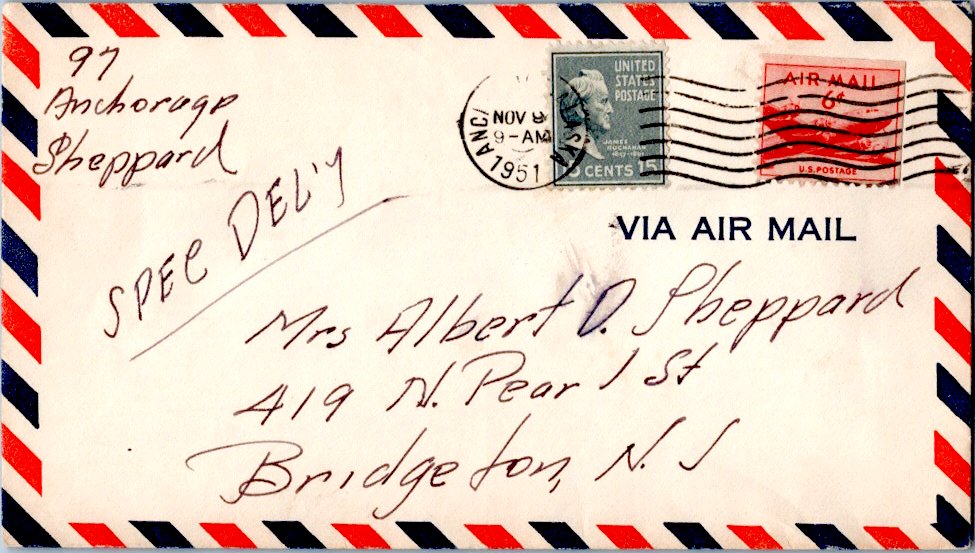 97
Anchorage
Sheppard
SPEC DEL'Y
NOV 9
9-AM
1951
UNITED
STATES
POSTAGE
JAMES
BUCHANAN
CENTS 15
AIR MAIL
6¢
U.S. POSTAGE
VIA AIR MAIL
Mrs Albert D. Sheppard
419 N. Pearl St
Bridgeton, N. J